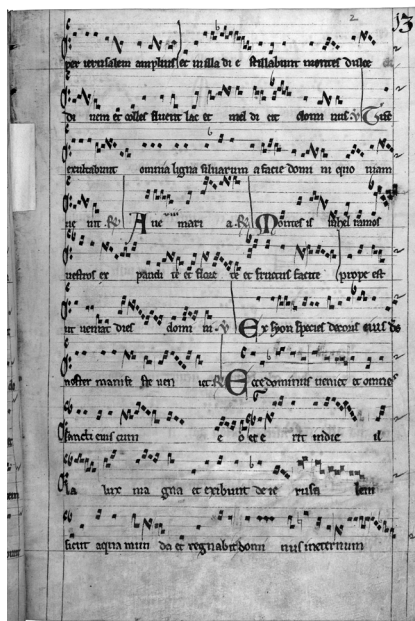 2 13
per ierusalem amplius et in illa di e stillabunt montes dulce
di nem et colles fluent lac et mel di cit domi nus. V Tunc
exultabunt omnia ligna siluarum a facie domi ni quo niam
ue nit. R Aue mari a. R Montes is rahel ramos
uestros ex pandi te et flore te et fructus facite prope est
ut ueniat dies domi ni. V Ex syon species decoris eius ds
noster manife ste ueni et. R Ecce dominus ueniet et omnes
sancti eius cum e o et e rit in die il
la lux ma gna et exibunt de ie rusa lem
sicut aqua mun da et regnabit domi nus ineternum